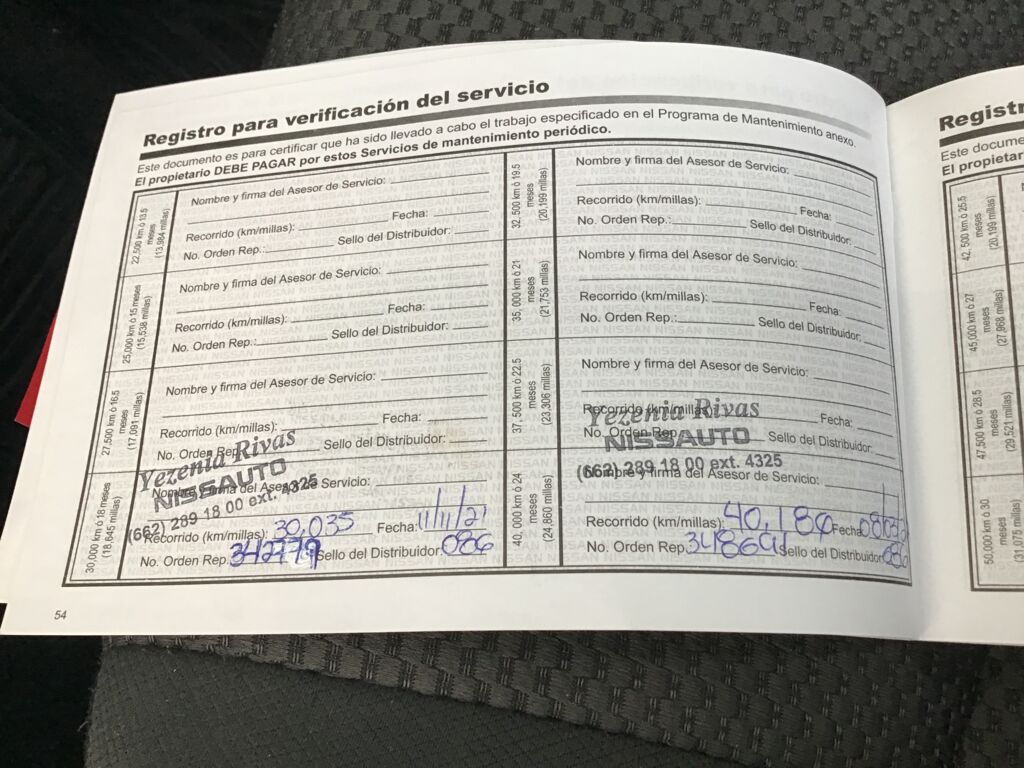 Registro para verificación del servicio
Este documento es para certificar que ha sido llevado a cabo el trabajo especificado en el Programa de Mantenimiento anexo.
El propietario DEBE PAGAR por estos Servicios de mantenimiento periódico.
22,500 km ó 13.5
meses
(13,984 millas)
Nombre y firma del Asesor de Servicio:
Recorrido (km/millas): Fecha:
No. Orden Rep.: Sello del Distribuidor:
25,000 km ó 15 meses
(15,538 millas)
Nombre y firma del Asesor de Servicio:
Recorrido (km/millas): Fecha:
No. Orden Rep.: Sello del Distribuidor:
27,500 km ó 16.5
meses
(17,091 millas)
Nombre y firma del Asesor de Servicio:
Recorrido (km/millas): Fecha:
No. Orden Rep. Sello del Distribuidor:
30,000 km ó 18 meses
(18,645 millas)
Yezenia Rivas
NISSAUTO
(662) 289 18 00 ext. 4325
Nombre y firma del Asesor de Servicio:
Recorrido (km/millas): 30,035 Fecha: 11/11/21
No. Orden Rep. 342779 Sello del Distribuidor 086
32,500 km ó 19.5
meses
(20,199 millas)
Nombre y firma del Asesor de Servicio:
Recorrido (km/millas): Fecha:
No. Orden Rep.: Sello del Distribuidor:
35,000 km ó 21
meses
(21,753 millas)
Nombre y firma del Asesor de Servicio:
Recorrido (km/millas): Fecha:
No. Orden Rep.: Sello del Distribuidor:
37,500 km ó 22.5
meses
(23,306 millas)
Nombre y firma del Asesor de Servicio:
Recorrido (km/millas) Fecha:
No. Orden Rep. Sello del Distribuidor:
40,000 km ó 24
meses
(24,860 millas)
Yezenia Rivas
NISSAUTO
(662) 289 18 00 ext. 4325
Nombre y firma del Asesor de Servicio:
Recorrido (km/millas): 40,186 Fecha
No. Orden Rep. Sello del Distribuidor 086
54
Registr
Este docume
El propietar
42, 500 km ó 25.5
meses
(20,199 millas)
45,000 km ó 27
meses
(27,968 millas)
47,500 km ó 28.5
meses
(29,521 millas)
50,000 km ó 30
meses
(31,075 millas)